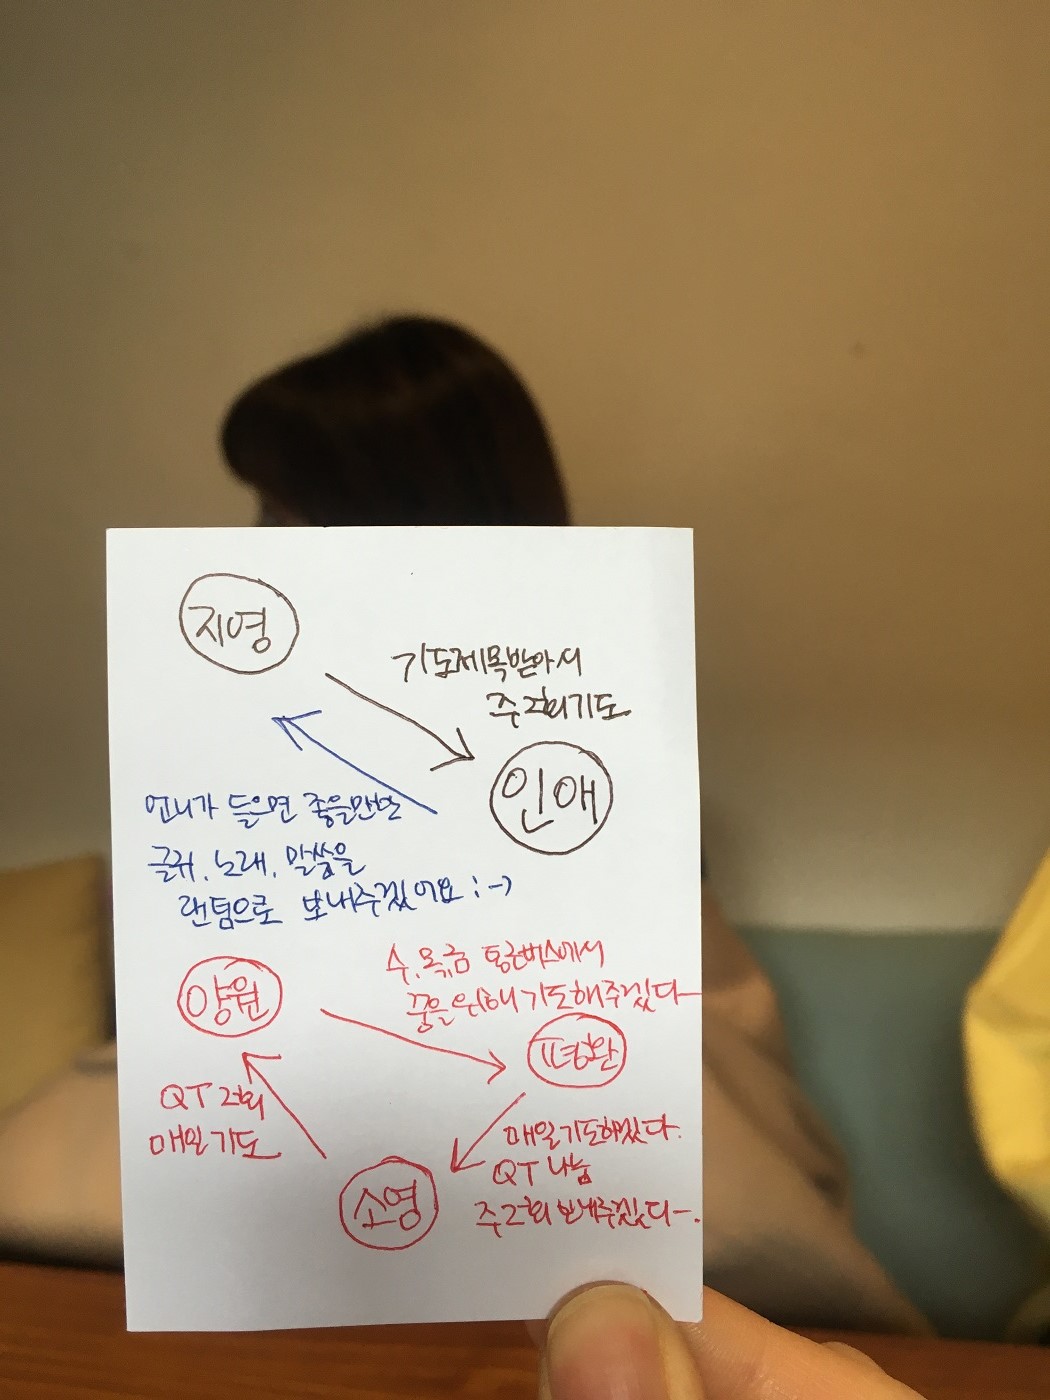 지영
기도제목받아서
주 2회 기도
인애
언니가 들으면 좋을만한
글귀, 노래, 말씀을
랜덤으로 보내주겠어요 :-)
양원
수,목,금 통근버스에서
중보를위해 기도해주겠다-
평화
QT 2회
매일 기도
매일기도하겠다.
QT 나눔
주2회 보내주겠다-.
소영